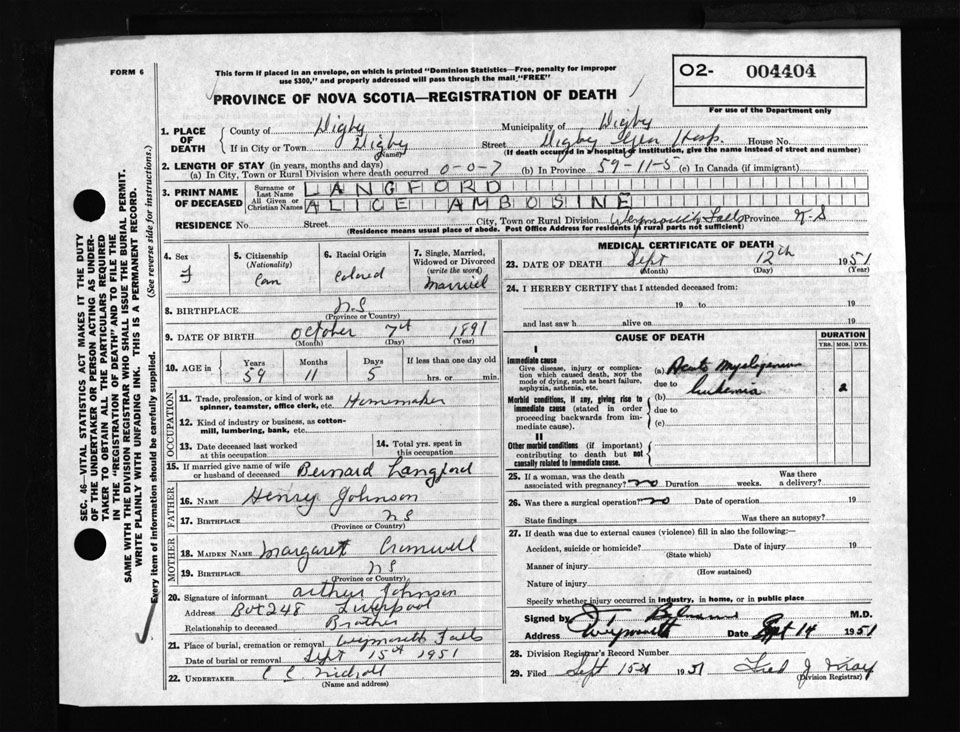 FORM 6
This form if placed in an envelope, on which is printed "Dominion Statistics—Free, penalty for improper
use $300," and properly addressed will pass through the mail "FREE"
O2- 004404
For use of the Department only
PROVINCE OF NOVA SCOTIA—REGISTRATION OF DEATH
1. PLACE OF DEATH
County of Digby Municipality of Digby
If in City or Town Digby (Name) Street Digby Gen Hosp. House No.
(If death occurred in a hospital or institution, give the name instead of street and number)
2. LENGTH OF STAY (in years, months and days)
(a) In City, Town or Rural Division where death occurred 0-0-7 (b) In Province 59-11-5 (c) In Canada (if immigrant)
3. PRINT NAME OF DECEASED
Surname or Last Name LANGFORD
All Given or Christian Names ALICE AMBOSINE
RESIDENCE No. Street City, Town or Rural Division Weymouth Falls Province N-S
(Residence means usual place of abode. Post Office Address for residents in rural parts not sufficient)
4. Sex F
5. Citizenship (Nationality) Can
6. Racial Origin Colored
7. Single, Married, Widowed or Divorced (write the word) Married
8. BIRTHPLACE NS
(Province or Country)
9. DATE OF BIRTH October 7th 1891
(Month) (Day) (Year)
10. AGE in Years 59 Months 11 Days 5 If less than one day old hrs. or min.
OCCUPATION
11. Trade, profession, or kind of work as spinner, teamster, office clerk, etc. Homemaker
12. Kind of industry or business, as cotton-mill, lumbering, bank, etc.
13. Date deceased last worked at this occupation
14. Total yrs. spent in this occupation
15. If married give name of wife or husband of deceased Bernard Langford
FATHER
16. NAME Henry Johnson
17. BIRTHPLACE NS
(Province or Country)
MOTHER
18. MAIDEN NAME Margaret Cromwell
19. BIRTHPLACE NS
(Province or Country)
20. Signature of informant Arthur Johnson
Address Box 248 Liverpool
Relationship to deceased Brother
21. Place of burial, cremation or removal Weymouth Falls
Date of burial or removal Sept 15th 1951
22. UNDERTAKER
(Name and address)
MEDICAL CERTIFICATE OF DEATH
23. DATE OF DEATH Sept 12th 1951
(Month) (Day) (Year)
24. I HEREBY CERTIFY that I attended deceased from:
19 to 19
and last saw h alive on 19
CAUSE OF DEATH
DURATION
YRS. MOS. DYS.
I
Immediate cause
Give disease, injury or complication which caused death, not the mode of dying, such as heart failure, asphyxia, asthenia, etc.
(a) Acute Myelogenous
due to leukemia 2
Morbid conditions, if any, giving rise to immediate cause (stated in order proceeding backwards from immediate cause).
(b)
due to
(c)
II
Other morbid conditions (if important) contributing to death but not causally related to immediate cause.
25. If a woman, was the death associated with pregnancy? no Duration weeks. Was there a delivery?
26. Was there a surgical operation? no Date of operation 19
State findings Was there an autopsy?
27. If death was due to external causes (violence) fill in also the following:—
Accident, suicide or homicide? Date of injury 19
(State which)
Manner of injury
(How sustained)
Nature of injury
Specify whether injury occurred in industry, in home, or in public place
Signed by M.D.
Address Weymouth Date Sept 14 1951
28. Division Registrar's Record Number
29. Filed Sept 15th 1951 Fred J
(Division Registrar)
SEC. 46—VITAL STATISTICS ACT MAKES IT THE DUTY
OF THE UNDERTAKER OR PERSON ACTING AS UNDER-
TAKER TO OBTAIN ALL THE PARTICULARS REQUIRED
IN THE "REGISTRATION OF DEATH" AND TO FILE THE
SAME WITH THE DIVISION REGISTRAR WHO SHALL ISSUE THE BURIAL PERMIT.
WRITE PLAINLY WITH UNFADING INK. THIS IS A PERMANENT RECORD.
Every item of information should be carefully supplied. (See reverse side for instructions.)